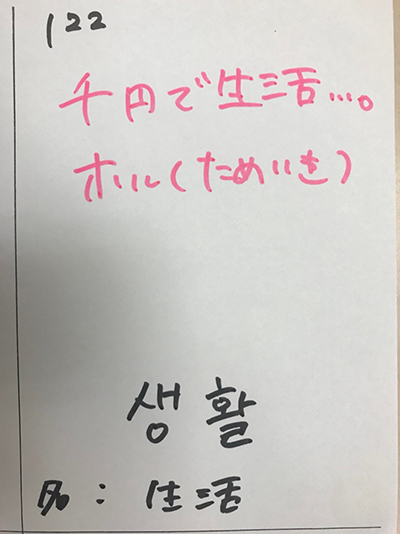 122
千円で生活…。
ホル(ためいき)
생활
名: 生活